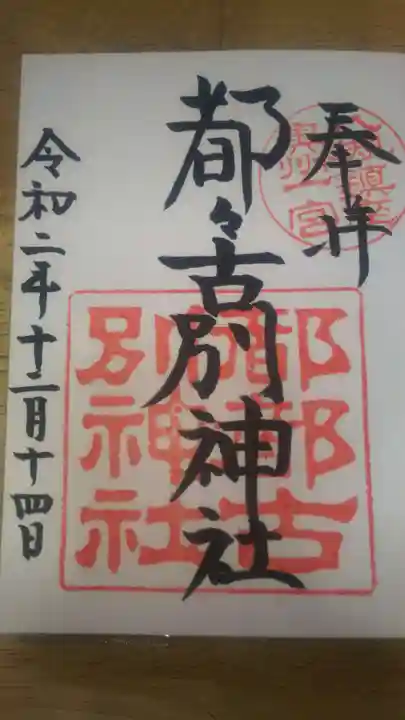 奉拝
奥州一宮
都々古別神社
都都古
別神社
令和二年十二月十四日